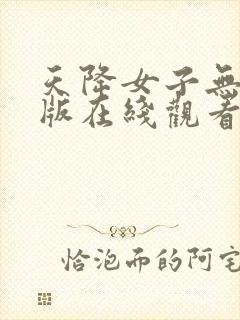 天降女子無
版在綫觀看
恰泡而的阿宅